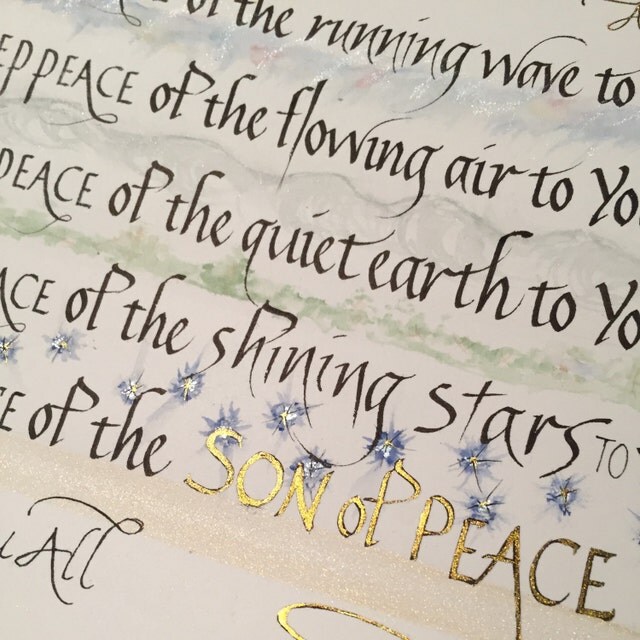 of the running wave to
PEACE of the flowing air to You
PEACE of the quiet earth to Yo
ACE of the shining stars TO
CE of the SON of PEACE
All